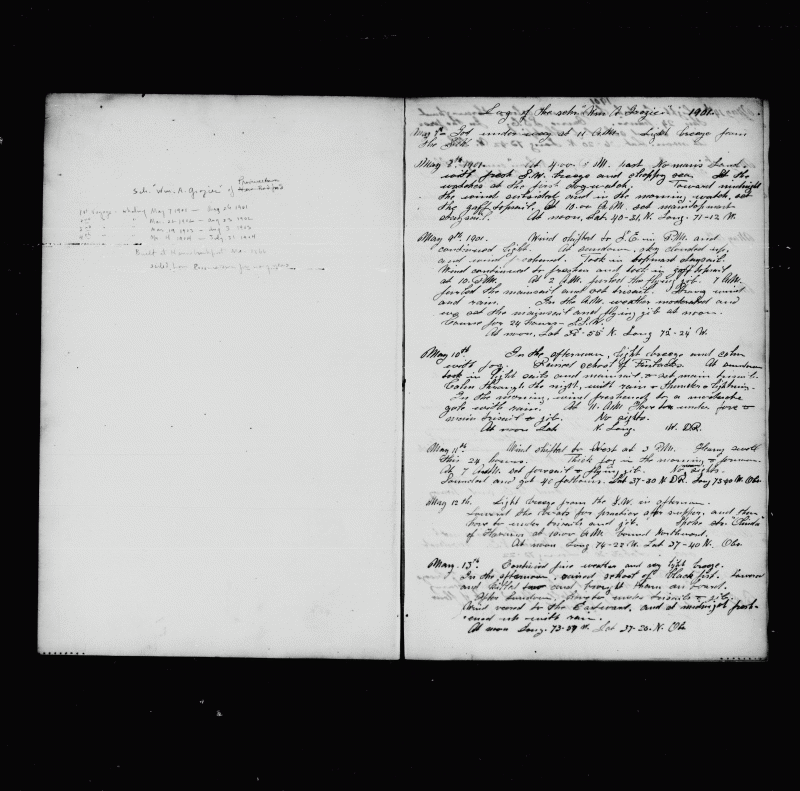 Provincetown
Sch. "Wm. A. Grozier" of New Bedford
1st Voyage - whaling May 7 1901 -
Log of the schr "Wm A Grozier" 1901.
May 7th Got under way at 11 A.M. Light breeze from
the S.W.
May 8th 1901. At 4.00 P.M. past No mans Land
with fresh S.W. breeze and choppy sea. Set the
watches at the first dog watch. Toward midnight
the wind and in the morning watch, set
the gaff topsail. at 10.00 A.M. set maintopmast
staysail. At noon, Lat. 40-31. N. Long. 71-12 W.
May 9th 1901. Wind shifted to S.E. in P.M. and
continued light. At sundown, sky clouded up,
and wind Took in topmast staysail.
Wind continued to freshen and took in gaff topsail
at 10 P.M. At 2 A.M. furled the flying jib. 7 A.M.
furled the mainsail and set trisail. Strong wind
and rain. In the A.M. weather moderated and
we set the mainsail and flying jib at noon.
Course for 24 hours - S.S.W.
At noon, Lat 38-55 N. Long 72-24 W.
May 10th In the afternoon, light breeze and calm
with fog. Raised school of At sundown
took in light sails and mainsail & set main trisail.
Calm through the night, with rain & thunder & lightning.
In the morning, wind freshened to a moderate
gale with rain. At 11 A.M. hove to under fore &
main trisail & jib. No sights.
At noon Lat N. Long. W. D.R.
May 11th Wind shifted to West at 3 P.M. Heavy swell
this 24 hours. Thick fog in the morning & forenoon.
At 7 A.M. set foresail & flying jib. No noon sights.
Sounded and got 40 fathoms. Lat 37-30 N D.R. Long 73-40 W. Obs.
May 12th, Light breeze from the S.W. in afternoon.
Lowered the boats for practice after supper, and then
hove to under trisails and jib. Spoke str.
of at 10.00 A.M. bound Northward.
At noon Long 74-22 W. Lat 37-40 N. Obs.
May. 13th. Continued fine weather and very light breeze.
In the afternoon, raised school of blackfish. Lowered
and killed two and brought them on board.
After sundown, hove to under trisails & jib.
Wind veered to the Eastward, and at midnight fresh-
ened with rain.
At noon Long. 73-59 W. Lat 37-20. N. Obs